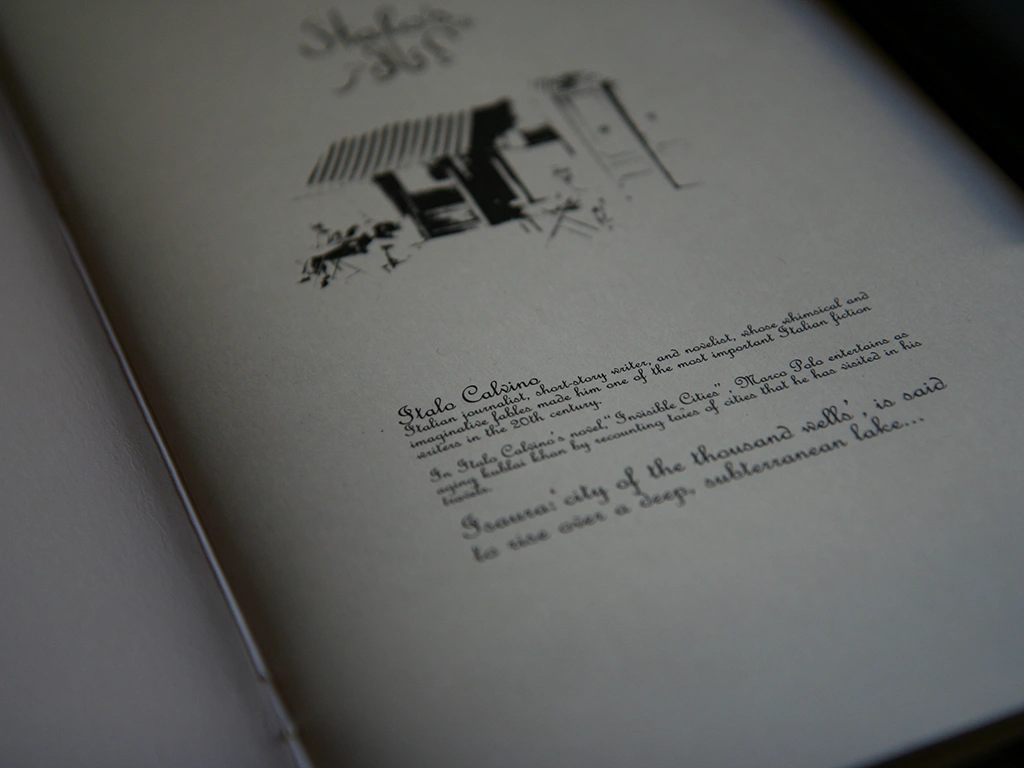 Italo Calvino
Italian journalist, short-story writer, and novelist, whose whimsical and
imaginative fables made him one of the most important Italian fiction
writers in the 20th century.
In Italo Calvino's novel,"Invisible Cities", Marco Polo entertains as
aging kublai khan by recounting tales of cities that he has visited in his
travels.
Isaura:'city of the thousand wells', is said
to rise over a deep, subterranean lake...